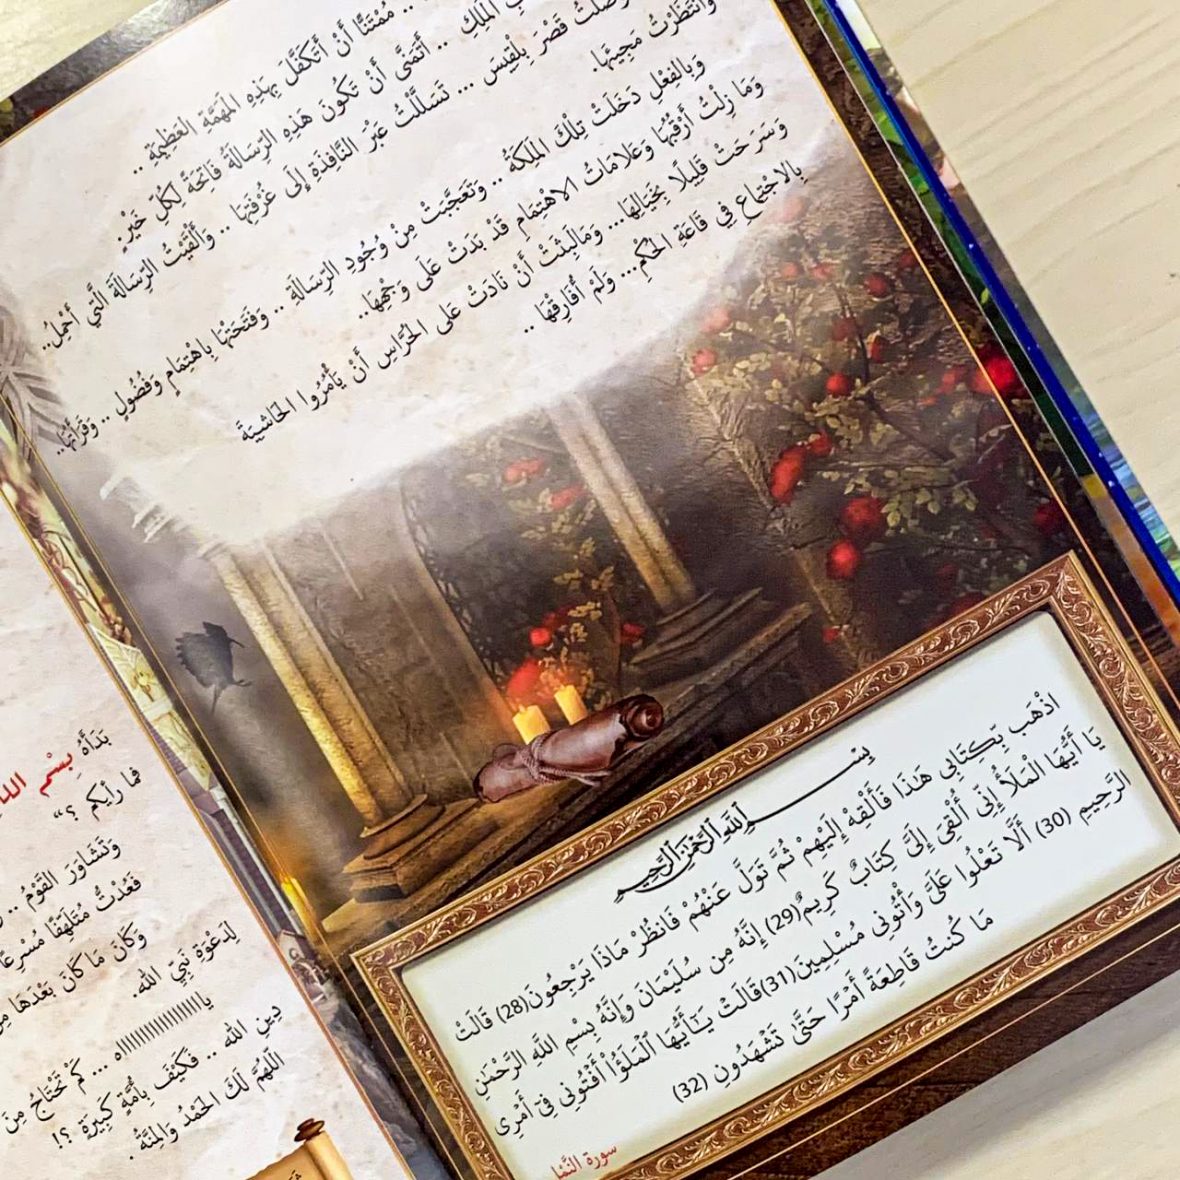 مُمْتَنًّا أَنْ أَتَكَفَّلَ بِهَذِهِ المَهَمَّةِ العَظِيمَةِ ..
المَلِكِ .. أَتَمَنَّى أَنْ تَكُونَ هَذِهِ الرِّسَالَةُ فَاتِحَةً لِكُلِّ خَيْرٍ.
وَصَلْتُ قَصْرَ بِلْقِيسَ ... تَسَلَّلْتُ عَبْرَ النَّافِذَةِ إِلَى غُرْفَتِهَا .. وَأَلْقَيْتُ الرِّسَالَةَ الَّتِي أَحْمِلُ..
وَانْتَظَرْتُ مَجِيئَهَا.
وَبِالفِعْلِ دَخَلَتْ تِلْكَ المَلِكَةُ .. وَتَعَجَّبَتْ مِنْ وُجُودِ الرِّسَالَةِ .. وَفَتَحَتْهَا بِاهْتِمَامٍ وَفُضُولٍ .. وَقَرَأَتْهَا..
وَمَا زِلْتُ أَرْقُبُهَا وَعَلَامَاتُ الاهْتِمَامِ قَدْ بَدَتْ عَلَى وَجْهِهَا..
وَسَرَحَتْ قَلِيلًا بِخَيَالِهَا... وَمَالَبِثَتْ أَنْ نَادَتْ عَلَى الحُرَّاسِ أَنْ يَأْمُرُوا الحَاشِيَةَ
بِالاجْتِمَاعِ فِي قَاعَةِ الحُكْمِ... وَلَمْ أُفَارِقْهَا ..
بِسْمِ اللَّهِ الرَّحْمَنِ الرَّحِيمِ
اذْهَب بِّكِتَابِي هَٰذَا فَأَلْقِهْ إِلَيْهِمْ ثُمَّ تَوَلَّ عَنْهُمْ فَانظُرْ مَاذَا يَرْجِعُونَ(28) قَالَتْ
يَا أَيُّهَا الْمَلَأُ إِنِّي أُلْقِيَ إِلَيَّ كِتَابٌ كَرِيمٌ(29) إِنَّهُ مِن سُلَيْمَانَ وَإِنَّهُ بِسْمِ اللَّهِ الرَّحْمَٰنِ
الرَّحِيمِ (30) أَلَّا تَعْلُوا عَلَيَّ وَأْتُونِي مُسْلِمِينَ(31)قَالَتْ يَـٰٓأَيُّهَا ٱلْمَلَؤُا۟ أَفْتُونِى فِىٓ أَمْرِى
مَا كُنتُ قَاطِعَةً أَمْرًا حَتَّىٰ تَشْهَدُونِ (32)
سورة النمل
بَدَأَهُ بِسْمِ
فَمَا رَأْيُكُم ؟“
وَتَشَاوَرَ القَوْمُ ..
فَعُدْتُ مُتَلَهِّفًا مُسْرِعًا
لِدَعْوَةِ نَبِيِّ اللهِ.
وَكَانَ مَا كَانَ بَعْدَهَا
... كَمْ نَحْتَاجُ مِنَ
دِينِ اللهِ .. فَكَيْفَ بِأُمَّةٍ كَبِيرَةٍ ؟!
اللَّهُمَّ لَكَ الحَمْدُ وَالمِنَّةُ .